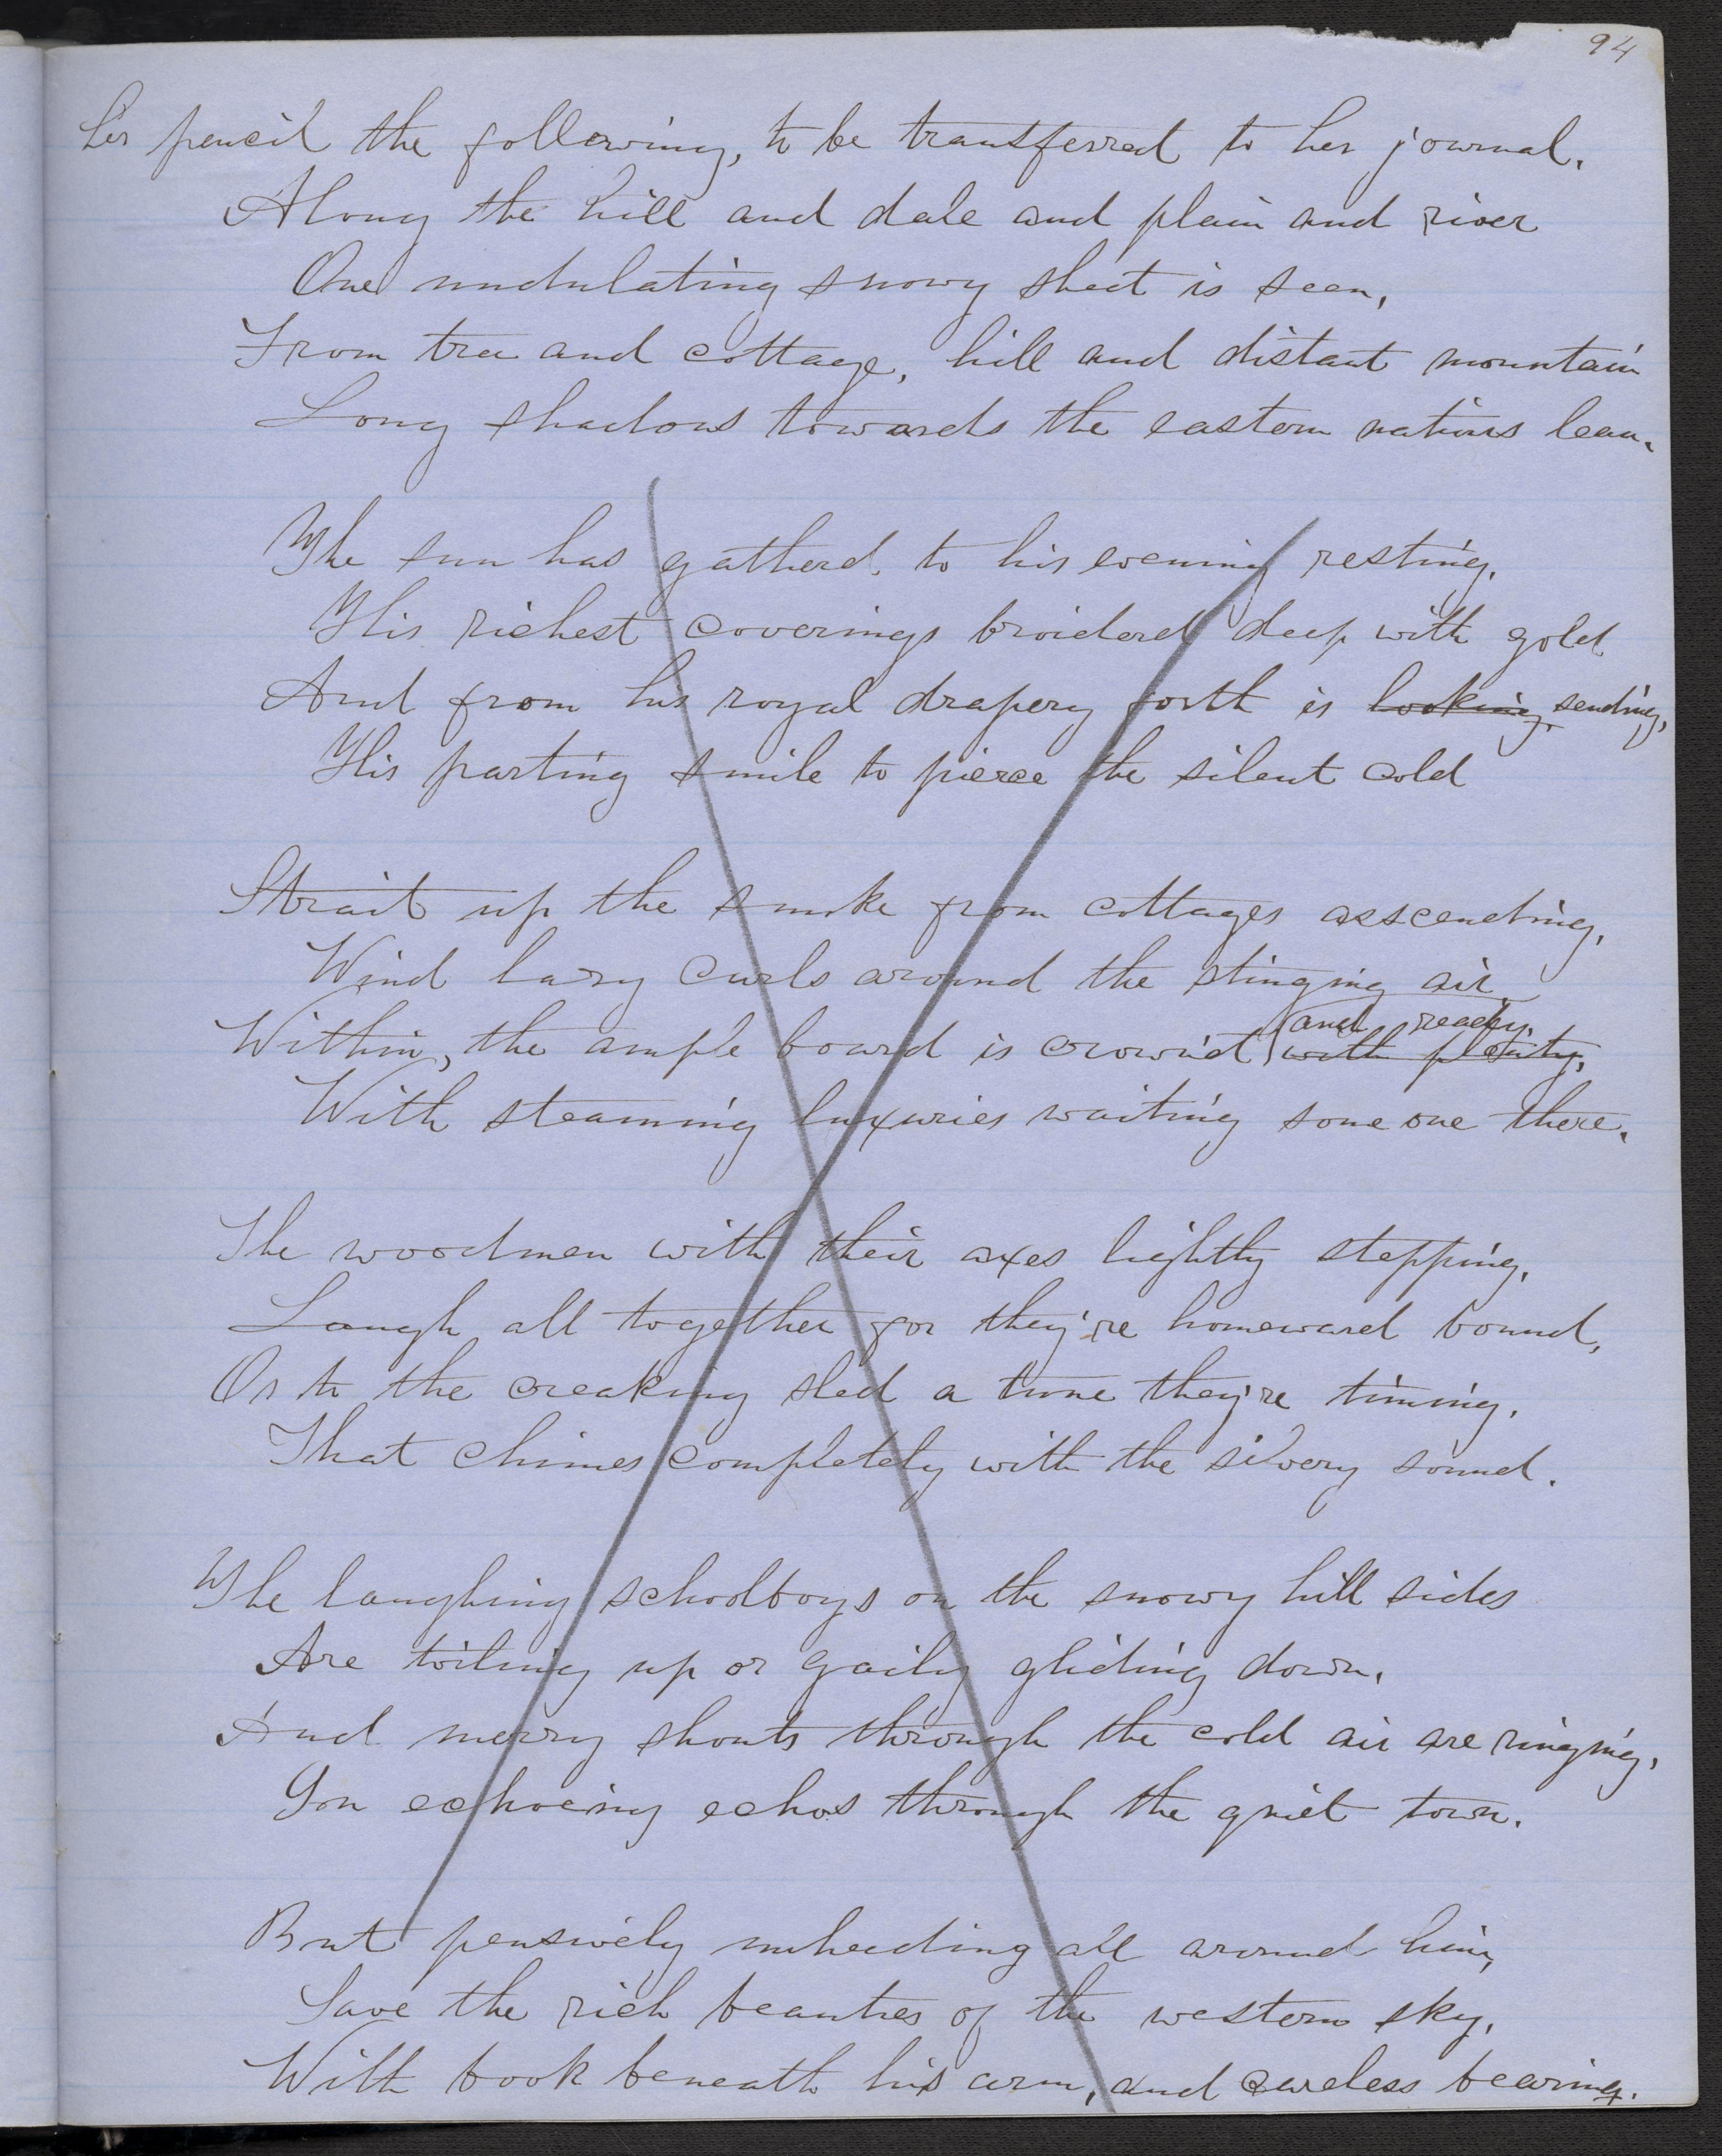 94
her pencil the following, to be transferred to her journal.
Along the hill and dale and plain and river
One undulating snowy sheet is seen,
From tree and cottage, hill and distant mountain
Long shadows towards the eastern nations lean.
The sun has gatherd to his evening resting,
His richest coverings broiderd deep with gold
And from his royal drapery forth is looking, sending,
His parting smile to pierce the silent cold
Strait up the smoke from cottages asscending,
Wind lazy curls around the stinging air
and ready,
Within, the ample board is crown'd with plenty,
With steaming luxuries waiting some one there.
The woodmen with their axes lightly stepping,
Laugh all together for they're homeward bound,
Or to the creaking sled a tune they're timing,
That chimes completely with the silvery sound.
The laughing schoolboys on the snowy hill sides
Are toiling up or gaily gliding down,
And merry shouts through the cold air are ringing,
In echoeing echos through the quiet town.
But pensively unheeding all around him,
Save the rich beauties of the western sky,
With book beneath his arm, and careless bearing.